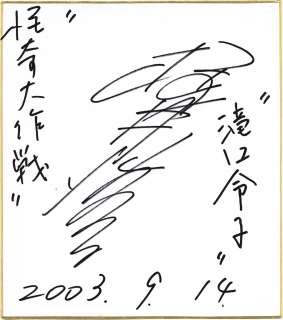 〝滝口令子〟
〝怪奇大作戦〟
2003. 9. 14.